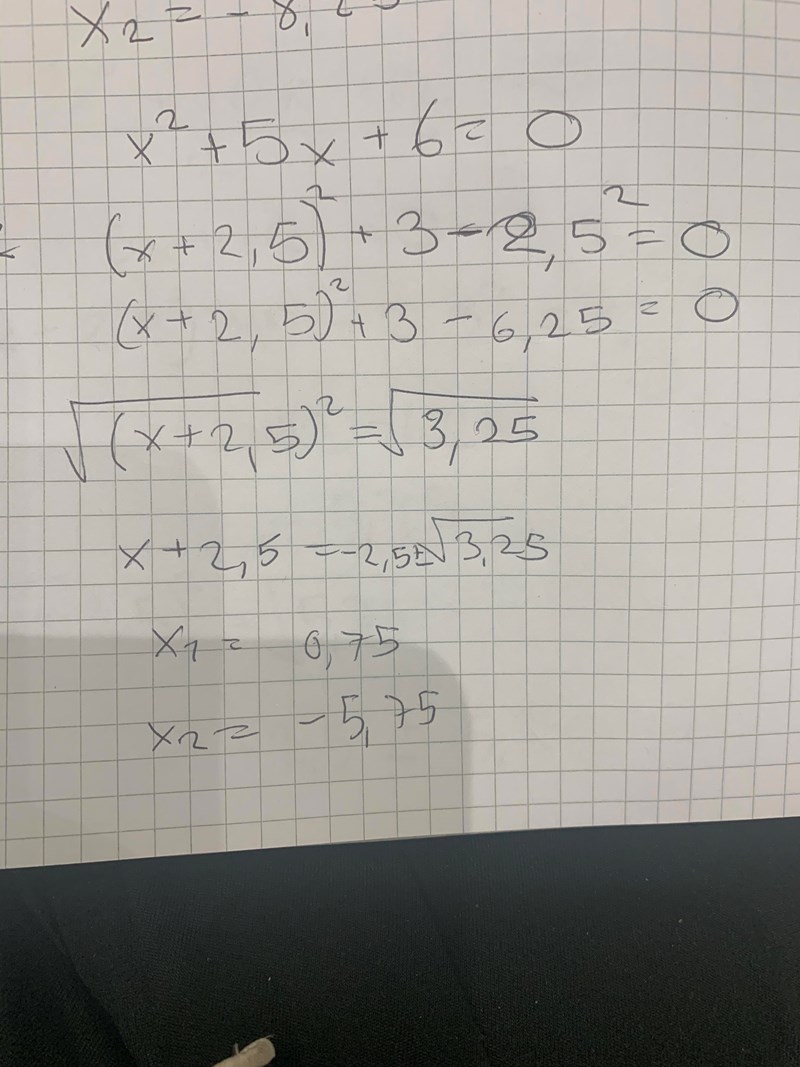 x₂ = - 8,25
x² + 5x + 6 = 0
(x + 2,5)² + 3 - 2,5² = 0
(x + 2,5)² + 3 - 6,25 = 0
√(x + 2,5)² = √3,25
x + 2,5 = -2,5 ± √3,25
x₁ = 0,75
x₂ = - 5,75